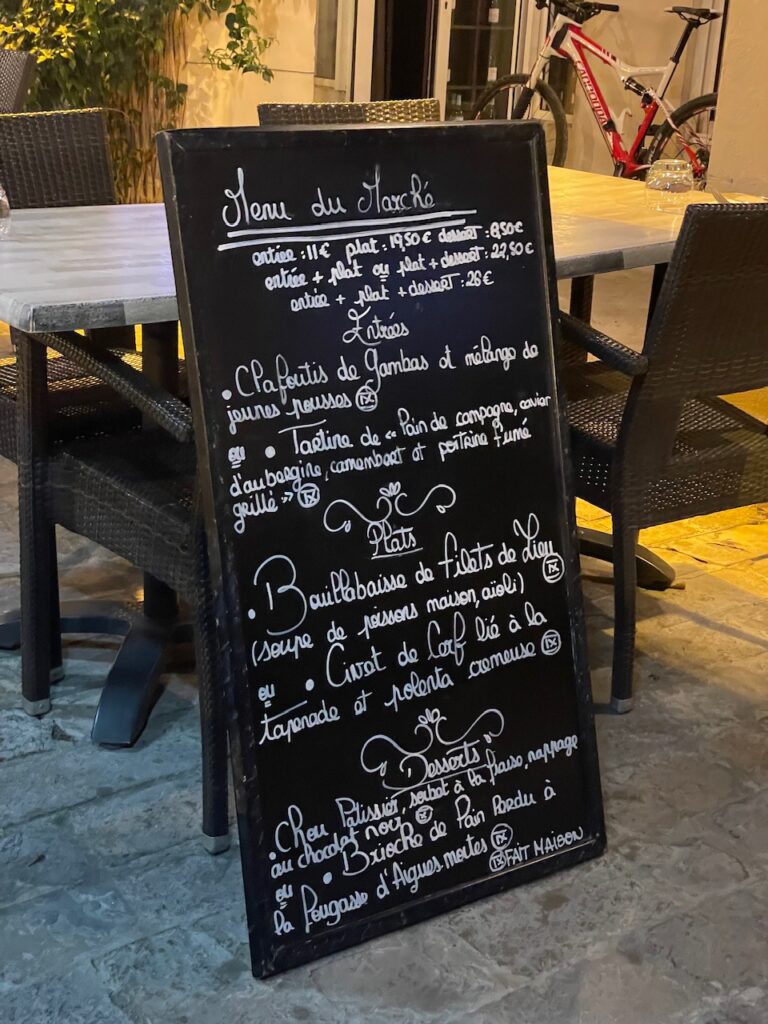 cannondale
Menu du Marché
entrée : 11€ plat : 19,50€ dessert : 8,50€
entrée + plat ou plat + dessert : 22,50€
entrée + plat + dessert : 26€
Entrées
• Clafoutis de Gambas et mélange de
jeunes pousses
ou • Tartine de « Pain de campagne, caviar
d'aubergine, camembert et poitrine fumé
grillé »
Plats
• Bouillabaisse de filets de Lieu
(soupe de poissons maison, aïoli)
ou • Civet de Cerf lié à la
tapenade et polenta cremeuse
Desserts
• Chou Patissier, sorbet à la fraise, nappage
au chocolat noir
ou • Brioche de Pain Perdu à
la Fougasse d'Aigues mortes
FAIT MAISON